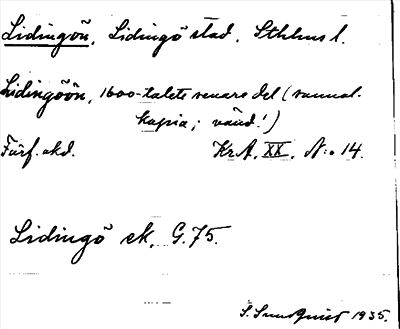 Lidingön, Lidingö stad, Sthlms l.
Lidingöön, 1600-talets senare del (samml.
kopia; vänd!)
Förf. okd. KrA, XX, N:o 14.
Lidingö ek, G.75.
S. Sundquist 1935.